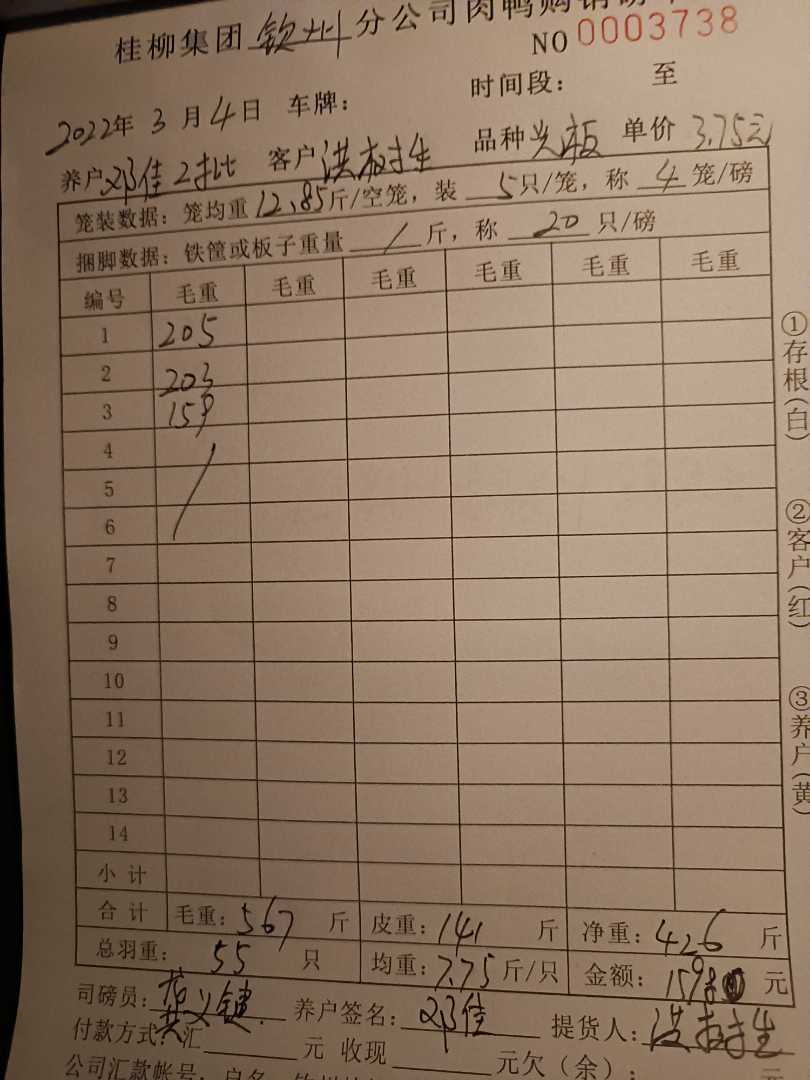 桂柳集团钦州分公司肉鸭购销磅单
NO 0003738
2022年3月4日 车牌: 时间段: 至
养户邓佳2批 客户洪 生 品种 板 单价3.75元
笼装数据:笼均重12.85斤/空笼,装5只/笼,称4笼/磅
捆脚数据:铁筐或板子重量/斤,称20只/磅
编号 毛重 毛重 毛重 毛重 毛重 毛重
1 205
2 203
3 159
4
5
6
7
8
9
10
11
12
13
14
小计
合计 毛重:567斤 皮重:141斤 净重:426斤
总羽重:55只 均重:7.75斤/只 金额:1598元
司磅员: 义键 养户签名:邓佳 提货人:洪 生
付款方式:汇 元 收现 元欠(余): 元
公司汇款帐号:户名:钦州
①存根(白) ②客户(红) ③养户(黄)